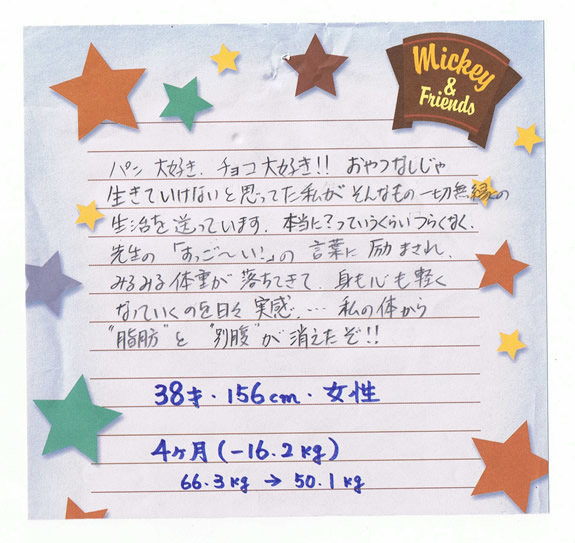 Mickey
&
Friends
パン大好き、チョコ大好き!! おやつなしじゃ
生きていけないと思ってた私がそんなもの一切無縁の
生活を送っています。本当に?っていうくらいつらくなく、
先生の「すっご〜い!」の言葉に励まされ、
みるみる体重が落ちてきて、身も心も軽く
なっていくのを日々実感。… 私の体から
"脂肪"と"別腹"が消えたぞ!!
38才・156cm・女性
4ヶ月(-16.2kg)
66.3kg → 50.1kg